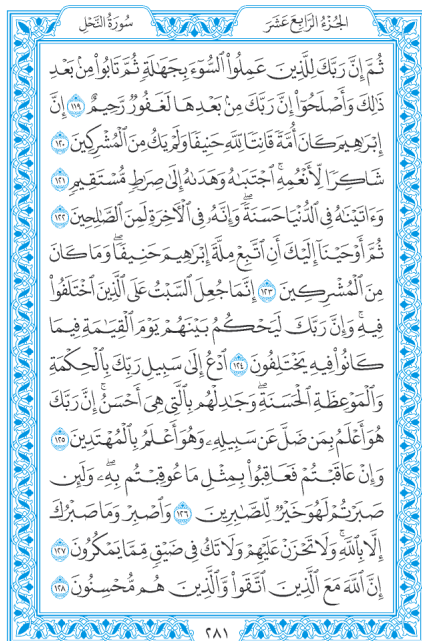 الجُزْءُ الرَّابِعَ عَشَرَ
سُورَةُ النَّحْلِ
ثُمَّ إِنَّ رَبَّكَ لِلَّذِينَ عَمِلُوا۟ ٱلسُّوٓءَ بِجَهَٰلَةٍ ثُمَّ تَابُوا۟ مِنۢ بَعْدِ
ذَٰلِكَ وَأَصْلَحُوٓا۟ إِنَّ رَبَّكَ مِنۢ بَعْدِهَا لَغَفُورٌ رَّحِيمٌ ١١٩ إِنَّ
إِبْرَٰهِيمَ كَانَ أُمَّةً قَانِتًا لِّلَّهِ حَنِيفًا وَلَمْ يَكُ مِنَ ٱلْمُشْرِكِينَ ١٢٠
شَاكِرًا لِّأَنْعُمِهِ ۚ ٱجْتَبَىٰهُ وَهَدَىٰهُ إِلَىٰ صِرَٰطٍ مُّسْتَقِيمٍ ١٢١
وَءَاتَيْنَٰهُ فِى ٱلدُّنْيَا حَسَنَةً ۖ وَإِنَّهُۥ فِى ٱلْءَاخِرَةِ لَمِنَ ٱلصَّٰلِحِينَ ١٢٢
ثُمَّ أَوْحَيْنَآ إِلَيْكَ أَنِ ٱتَّبِعْ مِلَّةَ إِبْرَٰهِيمَ حَنِيفًا ۖ وَمَا كَانَ
مِنَ ٱلْمُشْرِكِينَ ١٢٣ إِنَّمَا جُعِلَ ٱلسَّبْتُ عَلَى ٱلَّذِينَ ٱخْتَلَفُوا۟
فِيهِ ۚ وَإِنَّ رَبَّكَ لَيَحْكُمُ بَيْنَهُمْ يَوْمَ ٱلْقِيَٰمَةِ فِيمَا
كَانُوا۟ فِيهِ يَخْتَلِفُونَ ١٢٤ ٱدْعُ إِلَىٰ سَبِيلِ رَبِّكَ بِٱلْحِكْمَةِ
وَٱلْمَوْعِظَةِ ٱلْحَسَنَةِ ۖ وَجَٰدِلْهُم بِٱلَّتِى هِىَ أَحْسَنُ ۚ إِنَّ رَبَّكَ
هُوَ أَعْلَمُ بِمَن ضَلَّ عَن سَبِيلِهِۦ وَهُوَ أَعْلَمُ بِٱلْمُهْتَدِينَ ١٢٥
وَإِنْ عَاقَبْتُمْ فَعَاقِبُوا۟ بِمِثْلِ مَا عُوقِبْتُم بِهِۦ ۖ وَلَئِن
صَبَرْتُمْ لَهُوَ خَيْرٌ لِّلصَّٰبِرِينَ ١٢٦ وَٱصْبِرْ وَمَا صَبْرُكَ
إِلَّا بِٱللَّهِ ۚ وَلَا تَحْزَنْ عَلَيْهِمْ وَلَا تَكُ فِى ضَيْقٍ مِّمَّا يَمْكُرُونَ ١٢٧
إِنَّ ٱللَّهَ مَعَ ٱلَّذِينَ ٱتَّقَوا۟ وَّٱلَّذِينَ هُم مُّحْسِنُونَ ١٢٨
٢٨١